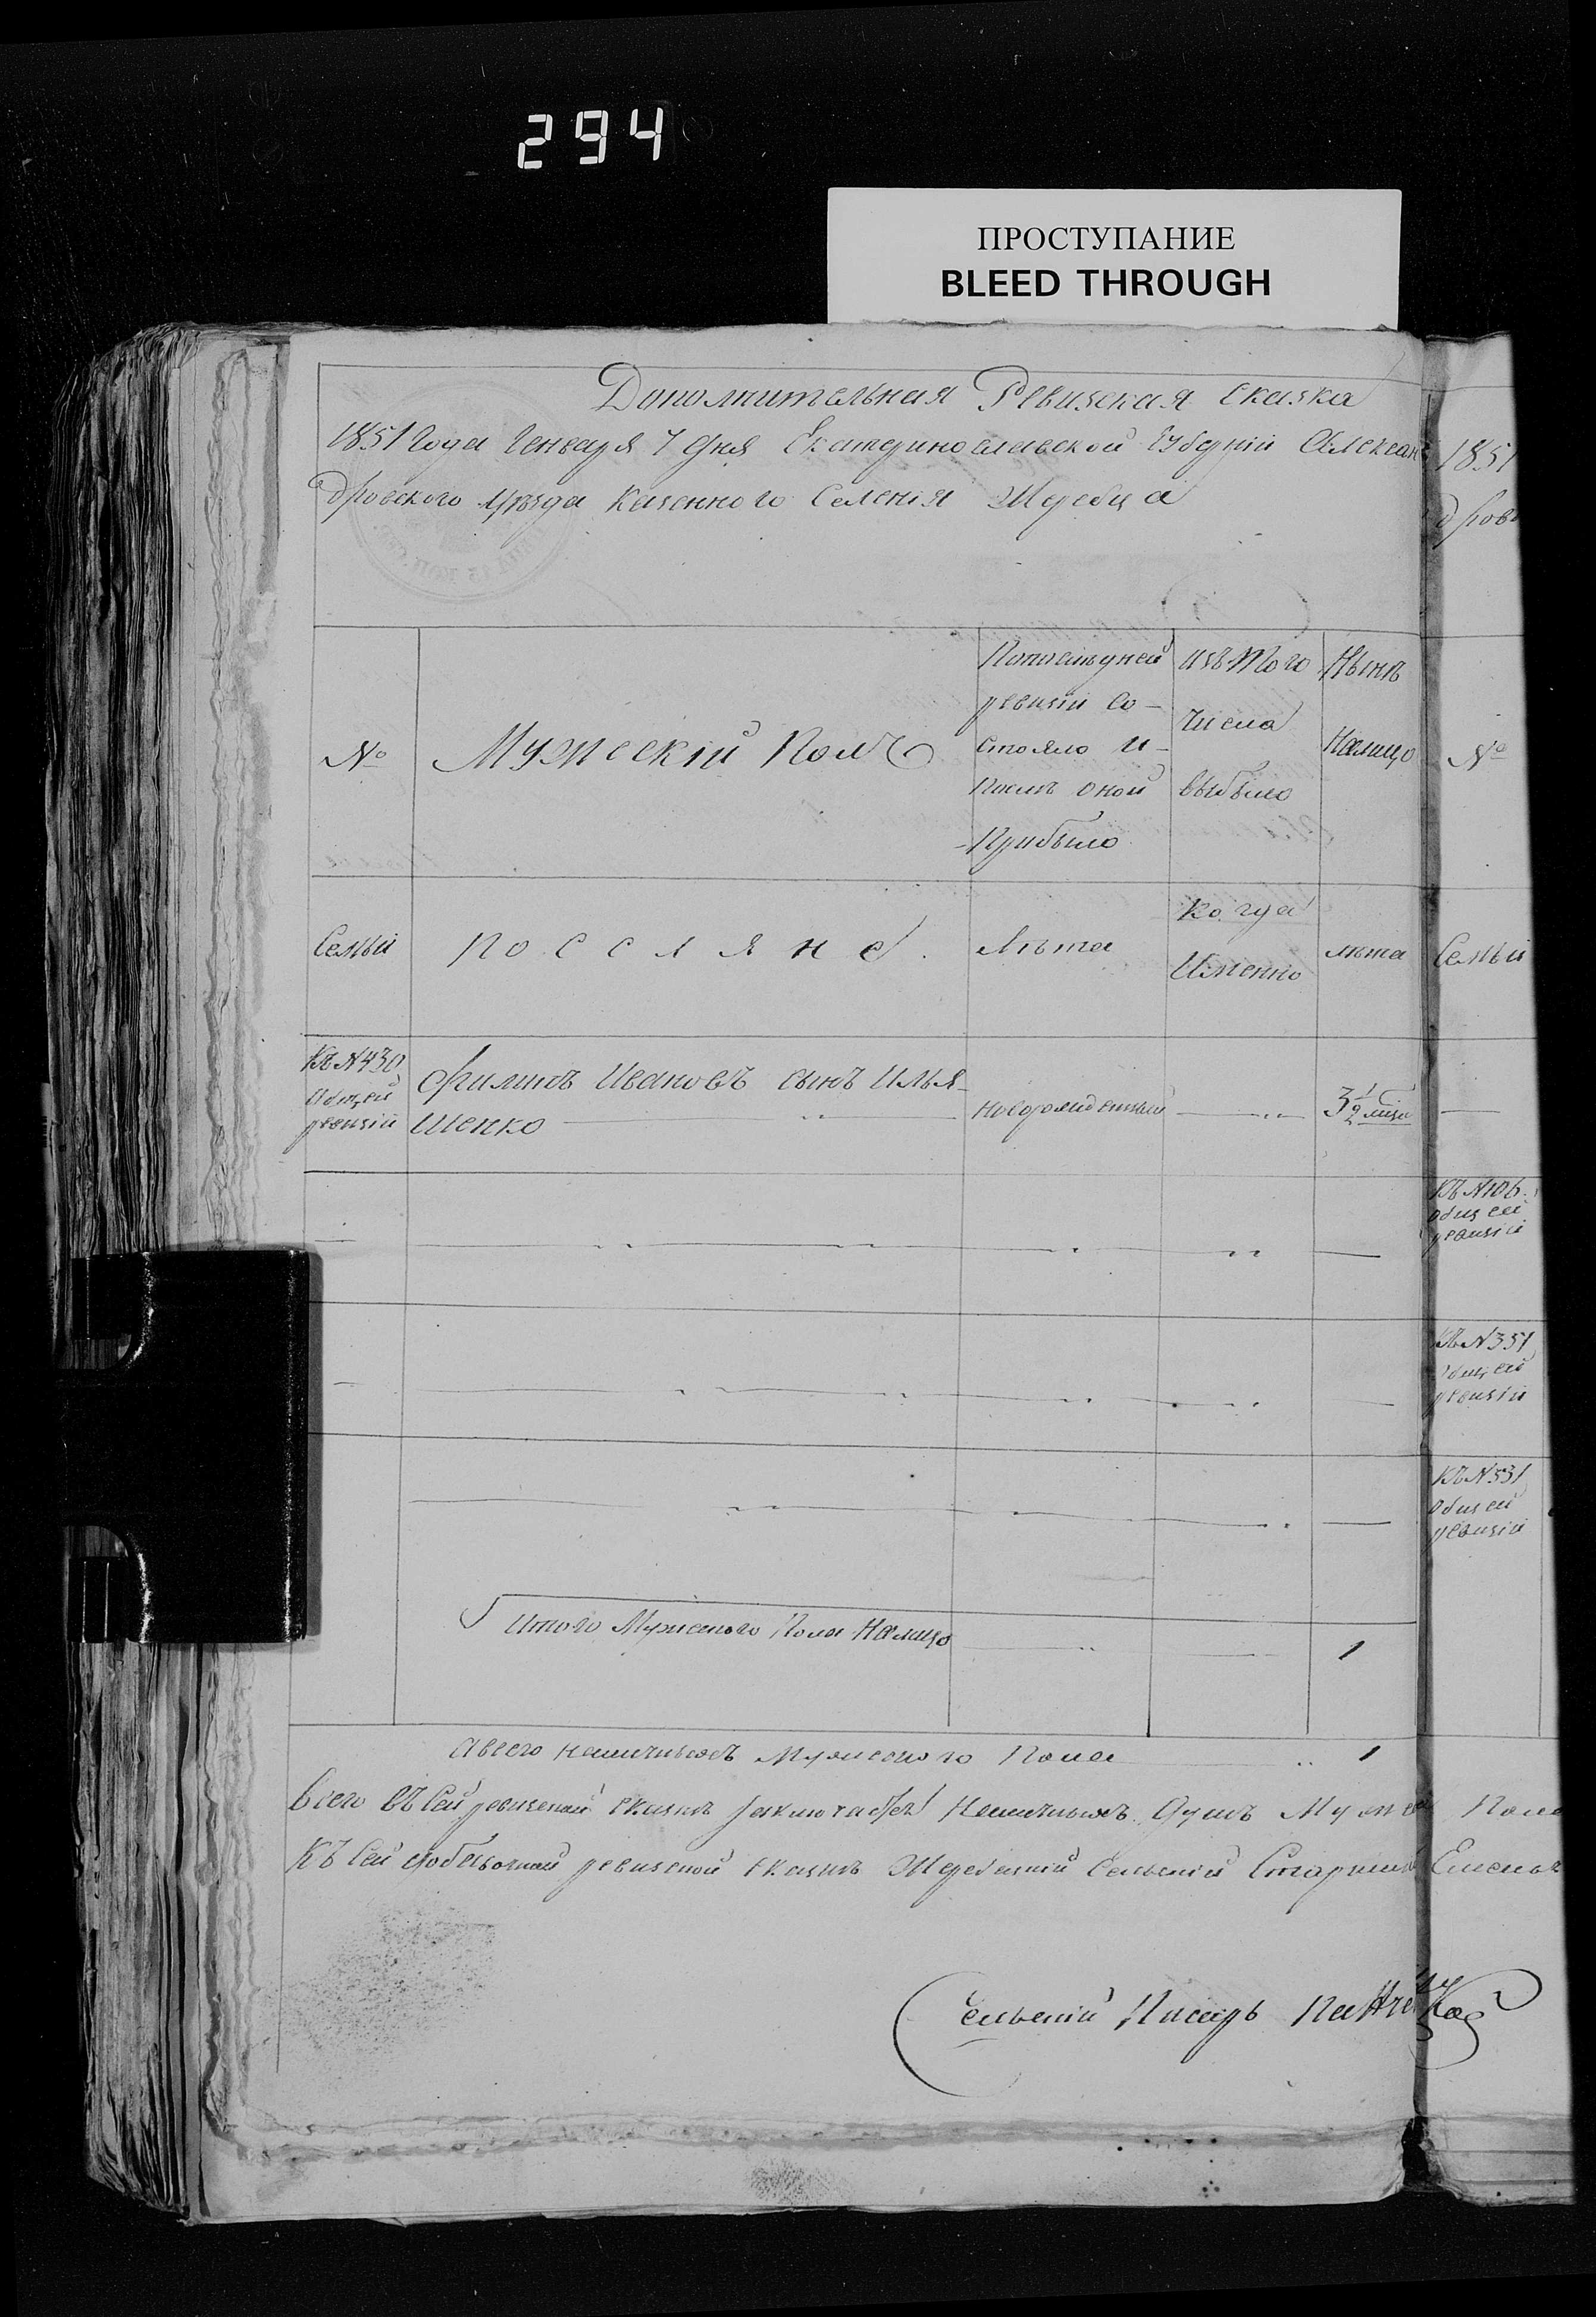 294
ПРОСТУПАНИЕ
BLEED THROUGH
Дополнительная Ревизская сказка
1851 года Генваря 7 дня Екатеринославской Губерніи Алексан
дровского уѣзда Казенного Селенія Жеребца
№
Мужескій Полъ
По последней
ревизіи со-
стояло и-
послѣ оной
Прибыло
изъ того
числа
выбыло
Нынѣ
Налицо
Семьи
Поселяне.
Лѣта
Когда
Именно
лѣта
Къ №430
Общей
ревизіи
Филипъ Ивановъ сынъ Илья-
шенко
новорожденный
3 1/2 мѣся
Итого Мужеского Пола Налицо
1
А всего наличныхъ Мужеского Пола
1
Всего въ сей ревизской сказкѣ заключается наличныхъ душъ Муже Пола
Къ сей ревизской сказкѣ Жеребецкій Сельскій Старшина
Сельскій Писарь
1851
дров
№
Семьи
Къ №106
общей
ревизіи
Къ №351
общей
ревизіи
Къ №531
общей
ревизіи